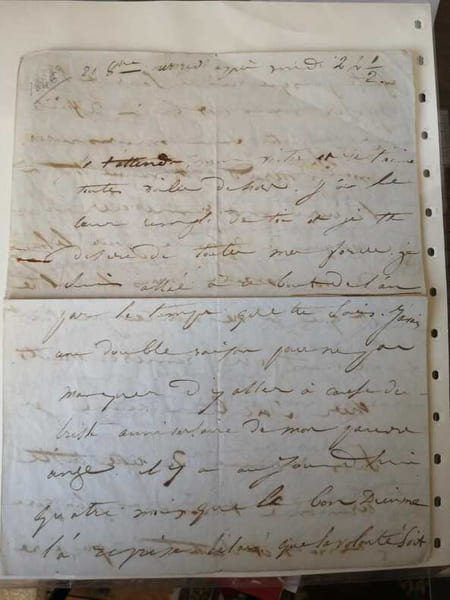 21 8bre mercredi après midi 2 h 1/2
Je t'attends, mon Victor et je t'aime
toutes voiles dehors. J'ai le
cœur rempli de toi et je te
désire de toutes mes forces. je
suis allée à ce bout de l'an
par le temps que tu sais. J'avais
une double raison pour ne pas
manquer d'y aller à cause du
triste anniversaire de mon pauvre
ange. il y a aujourd'hui
quatre mois que le bon Dieu me
l'a reprise hélas! que sa volonté soit